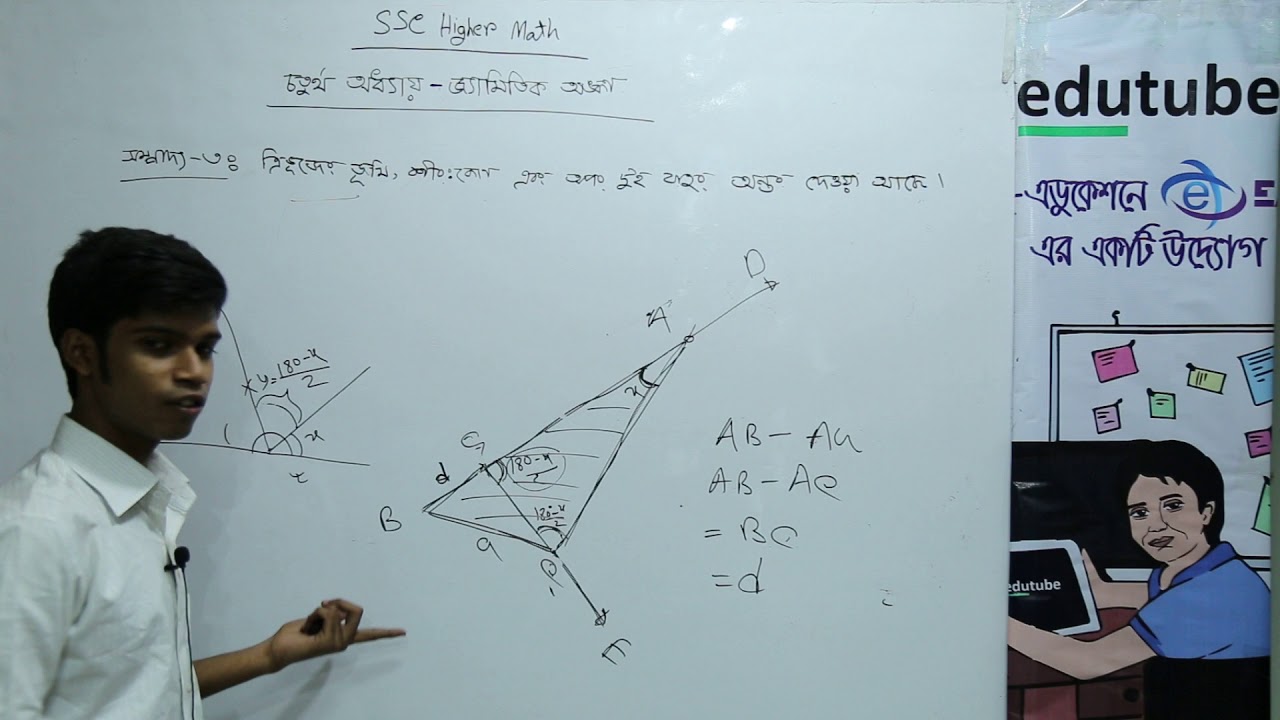 SSC Higher Math
চতুর্থ অধ্যায় - জ্যামিতিক অঙ্কন
সম্পাদ্য-৩ঃ ত্রিভুজের ভূমি, শীরঃকোণ এবং অপর দুই বাহুর অন্তর দেওয়া আছে।
y=180-x/2
x
D
A
x
G
180-x/2
d
180°-x/2
B
a
C
F
AB - AC
= d
edutube
-এডুকেশনে
এর একটি উদ্যোগ
edutube